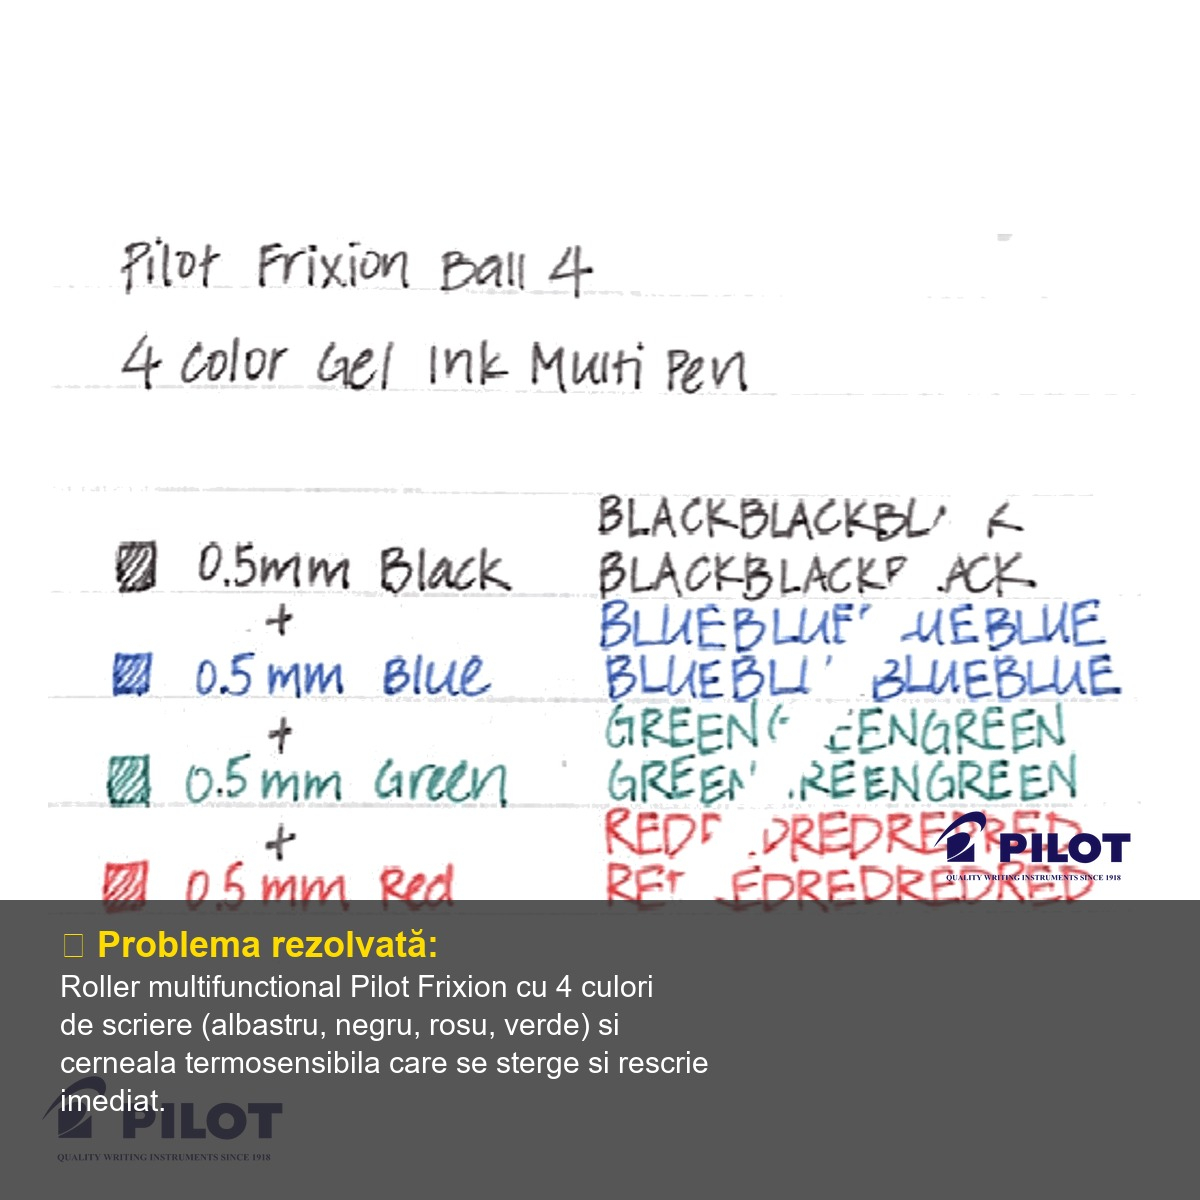 Pilot Frixion Ball 4
4 Color Gel Ink Multi Pen
BLACKBLACKBL K
0.5mm Black
BLACKBLACK ACK
+
BLUEBLUE UEBLUE
0.5mm Blue
BLUEBLU BLUEBLUE
+
GREENG EENGREEN
0.5mm Green
GREEN REENGREEN
+
RED DREDREDRED
PILOT
QUALITY WRITING INSTRUMENTS SINCE 1918
0.5mm Red
RE EDREDREDRED
Problema rezolvată:
Roller multifunctional Pilot Frixion cu 4 culori
de scriere (albastru, negru, rosu, verde) si
cerneala termosensibila care se sterge si rescrie
imediat.
PILOT
QUALITY WRITING INSTRUMENTS SINCE 1918